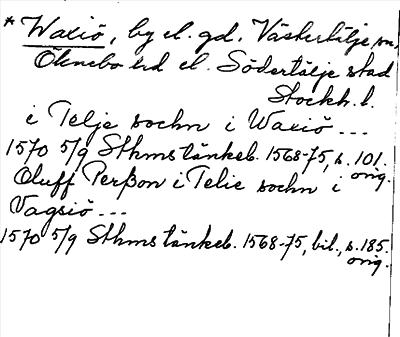 * Waxiö, by el. gd, Västertälje sn,
Öknebo hd el. Södertälje stad
Stockh. l.
i Telje sochn i Waxiö ...
1570 5/9 Sthms tänkeb. 1568-75, s. 101.
orig.
Oluff Perßon i Telie sochn i
Vagsiö ...
1570 5/9 Sthms tänkeb. 1568-75, bil., s. 185.
orig.